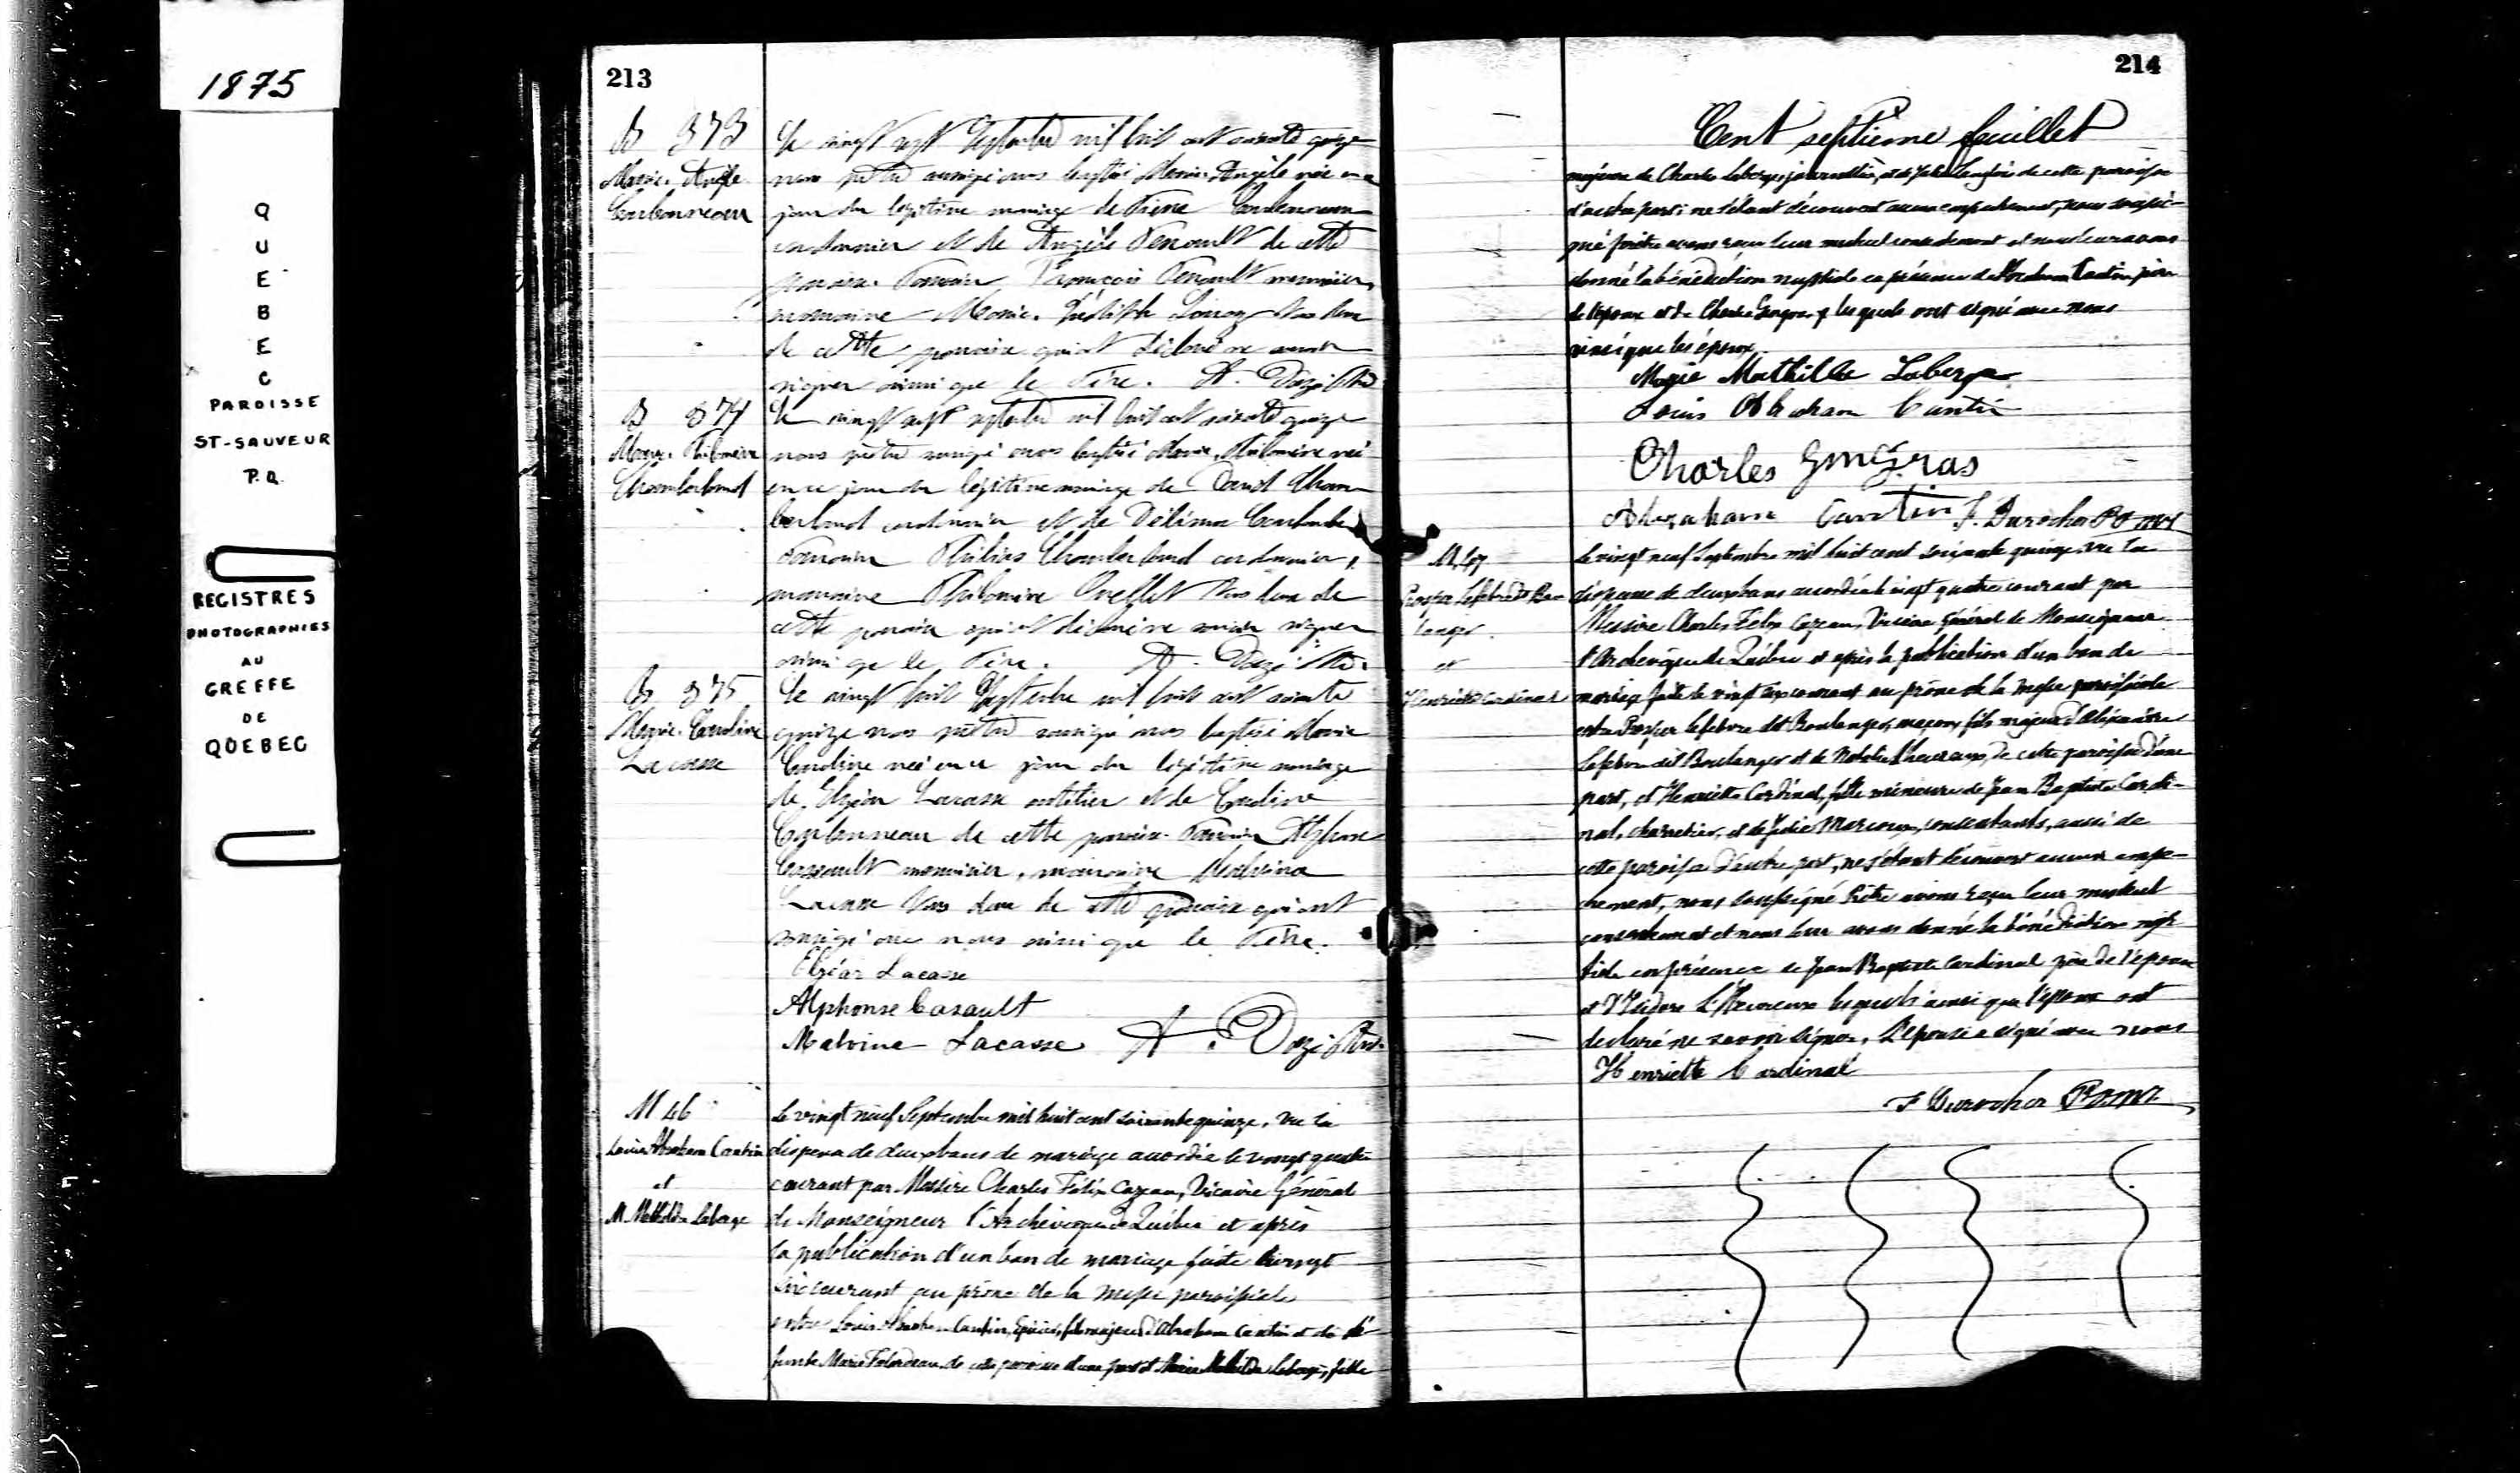 1875
QUEBEC
PAROISSE
ST-SAUVEUR
P.Q.
REGISTRES
PHOTOGRAPHIES
AU
GREFFE
DE
QUEBEC
213
B 373
Marie Angèle
Carbonneau
Le vingt sept Septembre mil huit cent soixante quinze
nous prêtre soussigné avons baptisé Marie Angèle née en ce
jour du légitime mariage de Pierre Carbonneau
cordonnier et de Angèle de cette
paroisse. Parrain François menuisier,
marraine Marie tous deux
de cette paroisse qui ont déclaré ne savoir
signer ainsi que le Père.
B 374
Marie Philomène
Chamberland
Le vingt sept septembre mil huit cent soixante quinze
nous prêtre soussigné avons baptisé Marie Philomène née
en ce jour du légitime mariage de David Cham
berland cordonnier et de Délima
Parrain Chamberland cordonnier,
marraine Philomène Ouellet tous deux de
cette paroisse qui ont déclaré ne savoir signer
ainsi que le Père.
B 375
Marie Caroline
Lacasse
Le vingt huit Septembre mil huit cent soixante
quinze nous prêtre soussigné avons baptisé Marie
Caroline née en ce jour du légitime mariage
de Elzéar Lacasse et de Caroline
Carbonneau de cette paroisse. Parrain Alphonse
Casault menuisier, marraine Malvina
Lacasse tous deux de cette paroisse qui ont
signé avec nous ainsi que le Père.
Elzéar Lacasse
Alphonse Casault
Malvina Lacasse
M 46
Louis Abraham Cantin
et
M. Mathilde Laberge
Le vingt neuf Septembre mil huit cent soixante quinze, vu la
dispense de deux bans de mariage accordée le vingt quatre
courant par Messire Charles Félix Cazeau, Vicaire Général
de Monseigneur l'Archevêque de Québec et après
la publication d'un ban de mariage faite le vingt
six courant au prône de la messe paroissiale
entre Louis Abraham Cantin, Epicier, fils majeur d'Abraham Cantin et de dé
funte Marie Falardeau de cette paroisse d'une part et Marie Mathilde Laberge, fille
214
Cent septième feuillet
majeure de Charles Laberge, journalier, et de Julie Langlois de cette paroisse
d'autre part; ne s'étant découvert aucun empêchement, nous soussi-
gné prêtre avons reçu leur mutuel consentement et nous leur avons
donné la bénédiction nuptiale en présence de Abraham Cantin père
de l'époux et de Charles Gingras lesquels ont signé avec nous
ainsi que les époux.
Marie Mathilde Laberge
Louis Abraham Cantin
Charles Gingras
Abraham Cantin F. Durocher P.O.M.I.
M. 47
Prosper Lefebvre dit Bou
langer
et
Henriette Cardinal
Le vingt neuf Septembre mil huit cent soixante quinze, vu la
dispense de deux bans accordée le vingt quatre courant par
Messire Charles Félix Cazeau, Vicaire Général de Monseigneur
l'Archevêque de Québec et après la publication d'un ban de
mariage faite le vingt six courant au prône de la messe paroissiale
entre Prosper Lefebvre dit Boulanger, maçon, fils majeur d'Alexandre
Lefebvre dit Boulanger et de Natalie Lheureux, de cette paroisse d'une
part, et Henriette Cardinal, fille mineure de Jean Baptiste Cardi-
nal, charretier, et de Julie Marcoux, consentants, aussi de
cette paroisse d'autre part, ne s'étant découvert aucun empê-
chement, nous soussigné Prêtre avons reçu leur mutuel
consentement et nous leur avons donné la bénédiction nup
tiale en présence de Jean Baptiste Cardinal père de l'épouse
et d'Isidore L'Heureux lesquels ainsi que l'époux ont
déclaré ne savoir signer, L'épouse a signé avec nous
Henriette Cardinal
F Durocher P.O.M.I.